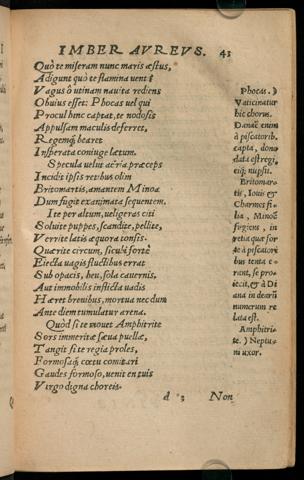 IMBER AVREVS. 43
Quò te miseram nunc maris æstus,
Adigunt quò te flamina venti
Vagus ô utinam navita rediens
Obuius esset: Phocas uel qui
Procul hinc captat, te nodosis
Appulsam maculis deferret,
Regemq; bearet
Insperata coniuge lætum.
Specula uelut aëria præceps
Incidit ipsis retibus olim
Britomartis, amantem Minoa
Dum fugit exanimata sequentem,
Ite per altum, ueligeras citi
Soluite puppes, scandite, pellite,
Verrite latis æquora tonsis.
Quærite circum, sicubi fortè
Eiecta uagis fluctibus errat
Sub opacis, heu, sola cauernis,
Aut immobilis inflicta uadis
Hæret breuibus, mortua nec dum
Ante diem tumulatur arena.
Quòd si te mouet Amphitrite
Sors immeritæ sæua puellæ,
Tangit si te regia proles,
Formosaq; cœtu comitari
Gaudes formoso, uenit en tuis
Virgo digna choreis.
d 3 Non
Phocas.)
Vaticinatur
hic chorus.
Danaë enim
à piscatorib.
capta, dono
data est regi,
eiq; nupsit.
Britomar-
tis, Iouis &
Charmes fi-
lia, Minoë
fugiens, in
retia quæ for
tè à piscatori
bus tenta e-
rant, se pro-
iecit, & à Di
ana in deorū
numerum re
lata est.
Amphitri-
te.) Neptu-
ni uxor.